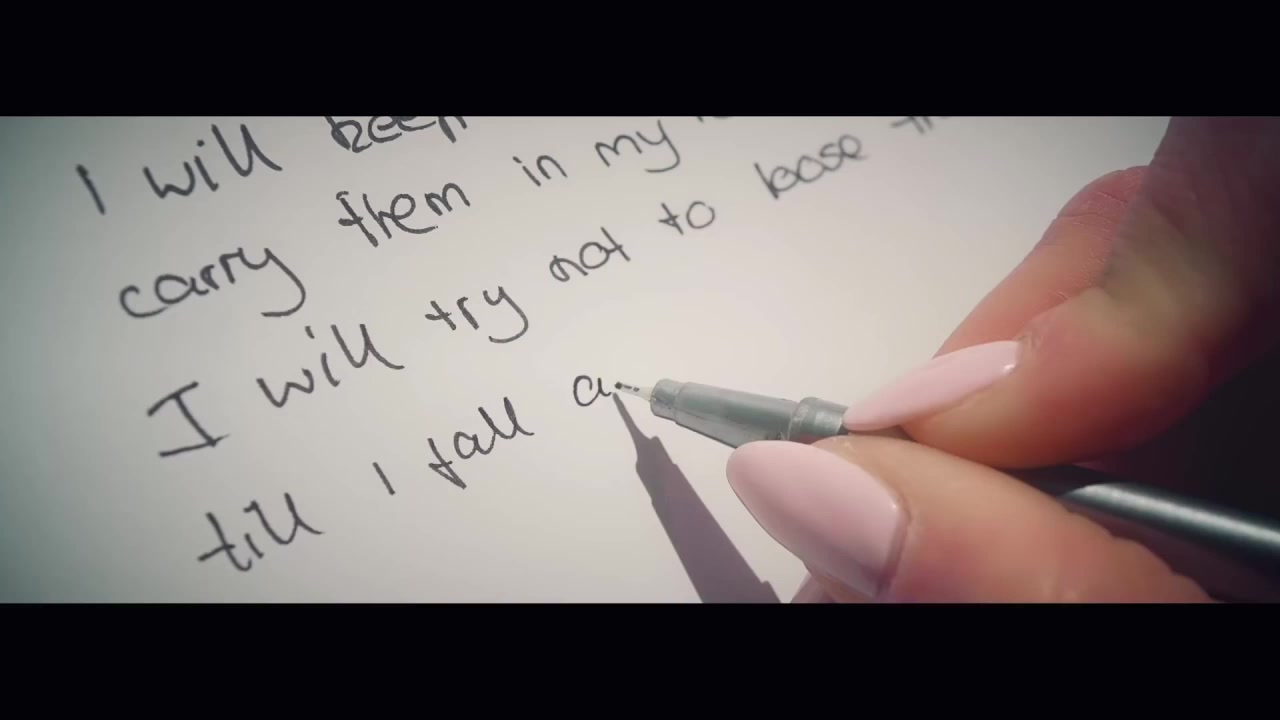 I will keep
carry them in my
I will try not to loose
till I fall a